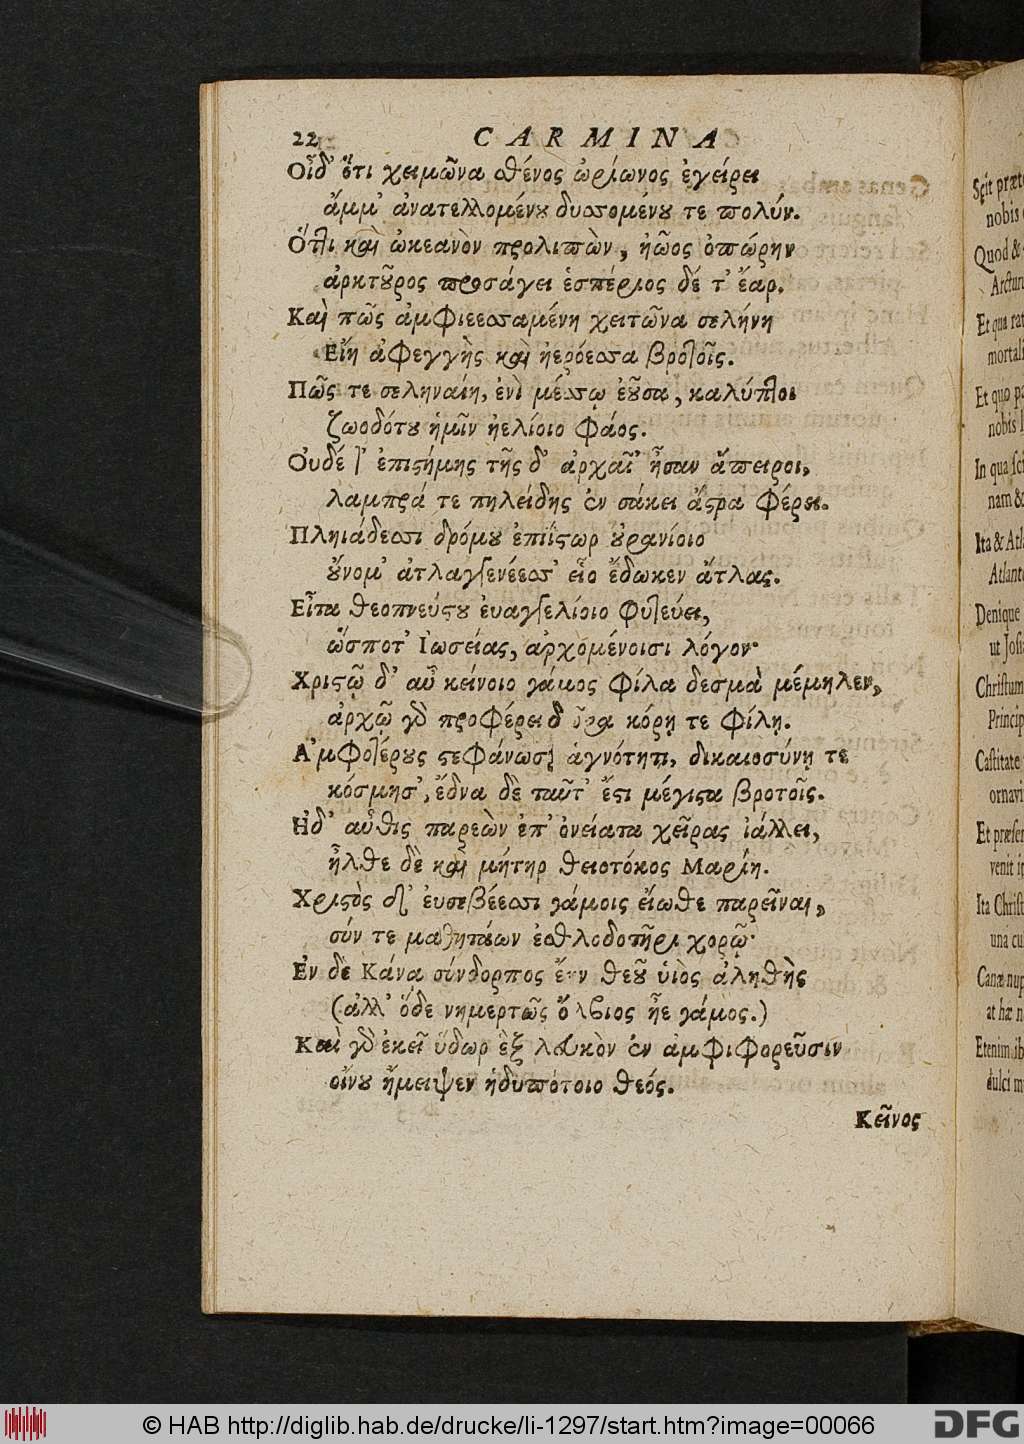 22 CARMINA
Οἶδ' ὅτι χειμῶνα σθένος ὠρίωνος ἐγείρει
ἄμμ' ἀνατελλομένου δυσσομένου τε πολύν.
Ὅττι καὶ ὠκεανὸν προλιπὼν, ἠῶος ὀπώρην
ἀρκτοῦρος προσάγει ἑσπέριος δέ τ' ἔαρ.
Καὶ πῶς ἀμφιεεσσαμένη χειτῶνα σελήνη
Εἴη ἀφεγγὴς καὶ ἠερόεσσα βροτοῖς.
Πῶς τε σεληναίη, ἐνὶ μέσσῳ ἐοῦσα, καλύπτοι
ζωοδότου ἡμῖν ἠελίοιο φάος.
Οὐδέ τ' ἐπιστήμης τῆς δ' ἀρχαῖ' ἦσαν ἄπειροι,
λαμπρά τε πηλείδης ἐν σάκει ἄστρα φέρει.
Πληιάδεσσι δρόμου ἐπιΐστωρ οὐρανίοιο
οὔνομ' ἀτλαγγενέεσσ' εἷο ἔδωκεν ἄτλας.
Εἶτα θεοπνεύστου ἐυαγγελίοιο φυτεύει,
ὥσποτ' Ἰωσείας, ἀρχομένοισι λόγον·
Χριστῷ δ' αὖ κείνοιο γάμος φίλα δεσμὰ μέμηλεν,
ἀρχῷ γὰρ προφέρει κόρῃ τε φίλῃ.
Ἀμφοτέρους στεφάνωσε ἁγνότητι, δικαιοσύνῃ τε
κόσμησ', ἕδνα δὲ ταῦτ' ἔστι μέγιστα βροτοῖς.
Ηδ' αὖθις παρεὼν ἐπ' ὀνείατα χεῖρας ἰάλλει,
ἦλθε δὲ καὶ μήτηρ θειοτόκος Μαρίη.
Χριστὸς δ' ἐυσεβέεσσι γάμοις εἴωθε παρεῖναι,
σύν τε μαθητάων ἐσθλοδοτῆρι χορῷ·
Ἐν δὲ Κάνα σύνδορπος ἔην θεοῦ ὑιὸς ἀληθὴς
(ἀλλ' ὅδε νημερτῶς ὄλβιος ἦε γάμος.)
Καὶ γὰρ ἐκεῖ ὕδωρ ἐξ λευκὸν ἐν ἀμφιφορεῦσιν
οἴνου ἤμειψεν ἡδυπότοιο θεός.
Κεῖνος
© HAB http://diglib.hab.de/drucke/li-1297/start.htm?image=00066
DFG